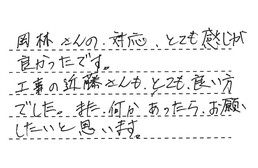 岡林さんの対応、とても感じが
良かったです。
工事の近藤さんも、とても良い方
でした。また何かあったら、お願い
したいと思います。